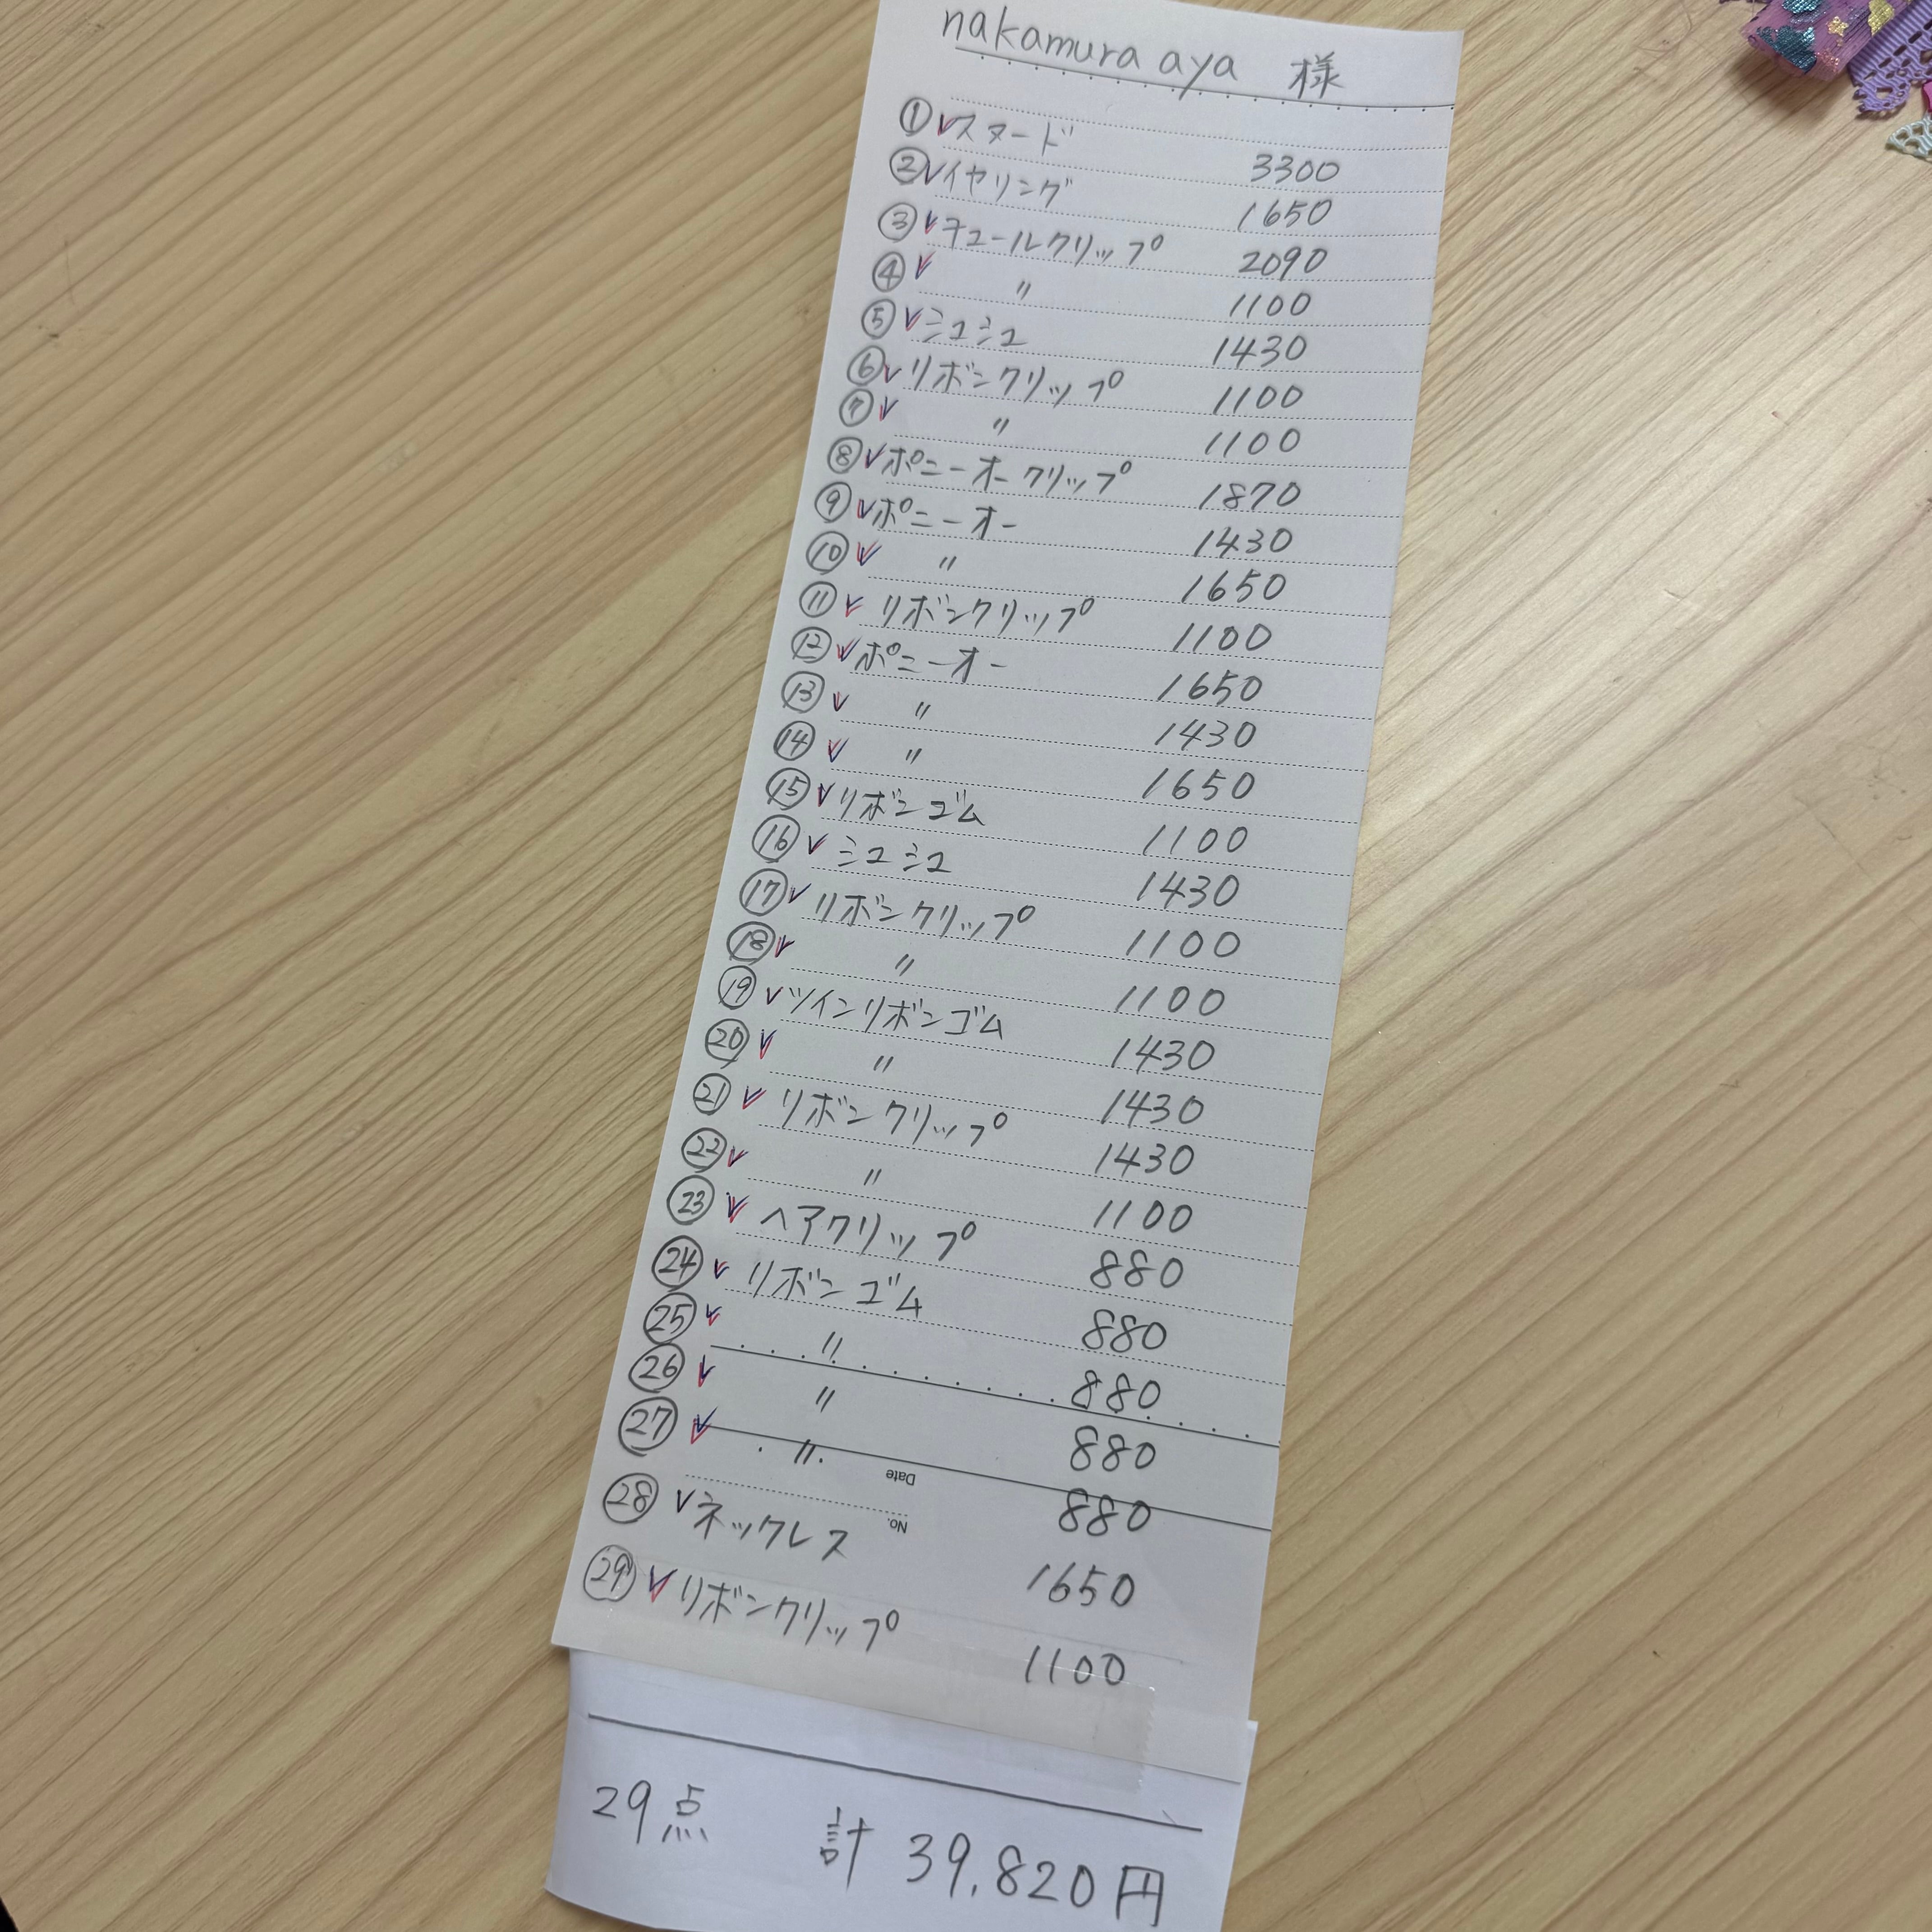 nakamura aya 様
① ✓スヌード 3300
② ✓イヤリング 1650
③ ✓チュールクリップ 2090
④ ✓ 〃 1100
⑤ ✓シュシュ 1430
⑥ ✓リボンクリップ 1100
⑦ ✓ 〃 1100
⑧ ✓ポニーオークリップ 1870
⑨ ✓ポニーオー 1430
⑩ ✓ 〃 1650
⑪ ✓リボンクリップ 1100
⑫ ✓ポニーオー 1650
⑬ ✓ 〃 1430
⑭ ✓ 〃 1650
⑮ ✓リボンゴム 1100
⑯ ✓シュシュ 1430
⑰ ✓リボンクリップ 1100
⑱ ✓ 〃 1100
⑲ ✓ツインリボンゴム 1430
⑳ ✓ 〃 1430
㉑ ✓リボンクリップ 1430
㉒ ✓ 〃 1100
㉓ ✓ヘアクリップ 880
㉔ ✓リボンゴム 880
㉕ ✓ 〃 880
㉖ ✓ 〃 880
㉗ ✓ 〃 880
Date
No.
㉘ ✓ネックレス 1650
㉙ ✓リボンクリップ 1100
29点 計 39,820円